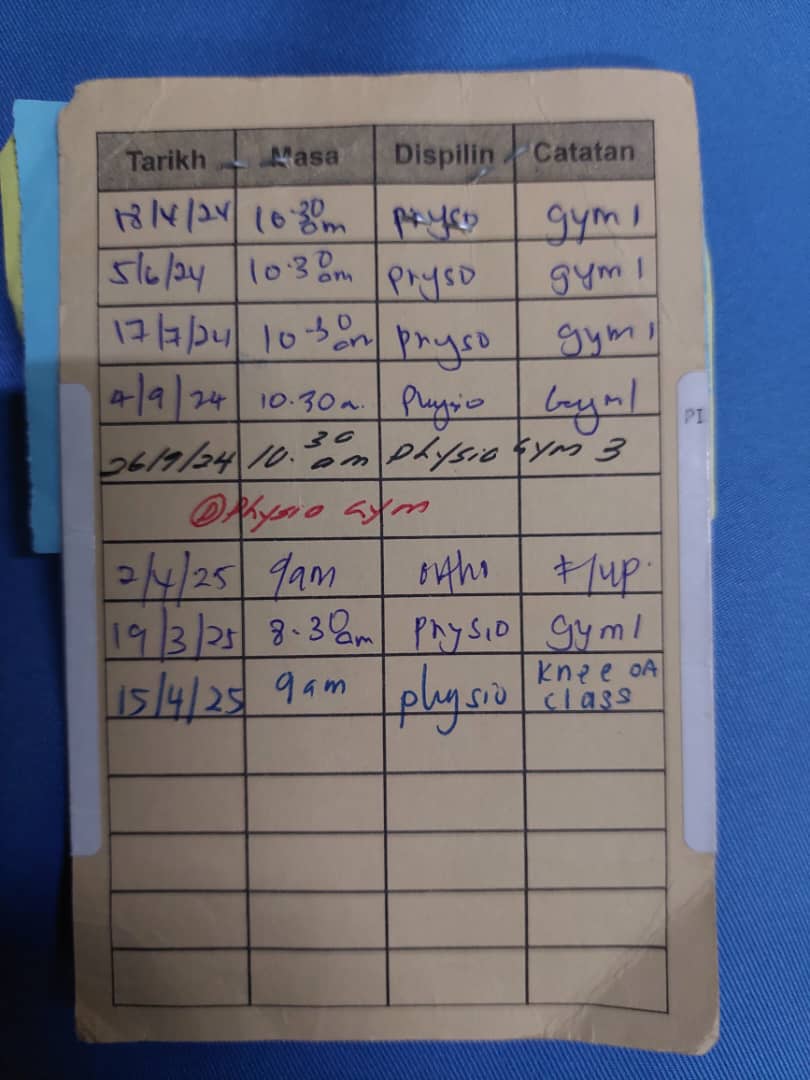 Tarikh Masa Dispilin Catatan
18/4/24 10.30am physo gym 1
5/6/24 10.30am physo gym 1
17/7/24 10.30am physo gym 1
4/9/24 10.30a. Physio Gym1
26/9/24 10.30am Physio GYM 3
D Physio Gym
2/4/25 9am ortho F/up.
19/3/25 8.30am physio gym1
15/4/25 9am physio Knee OA class
PI